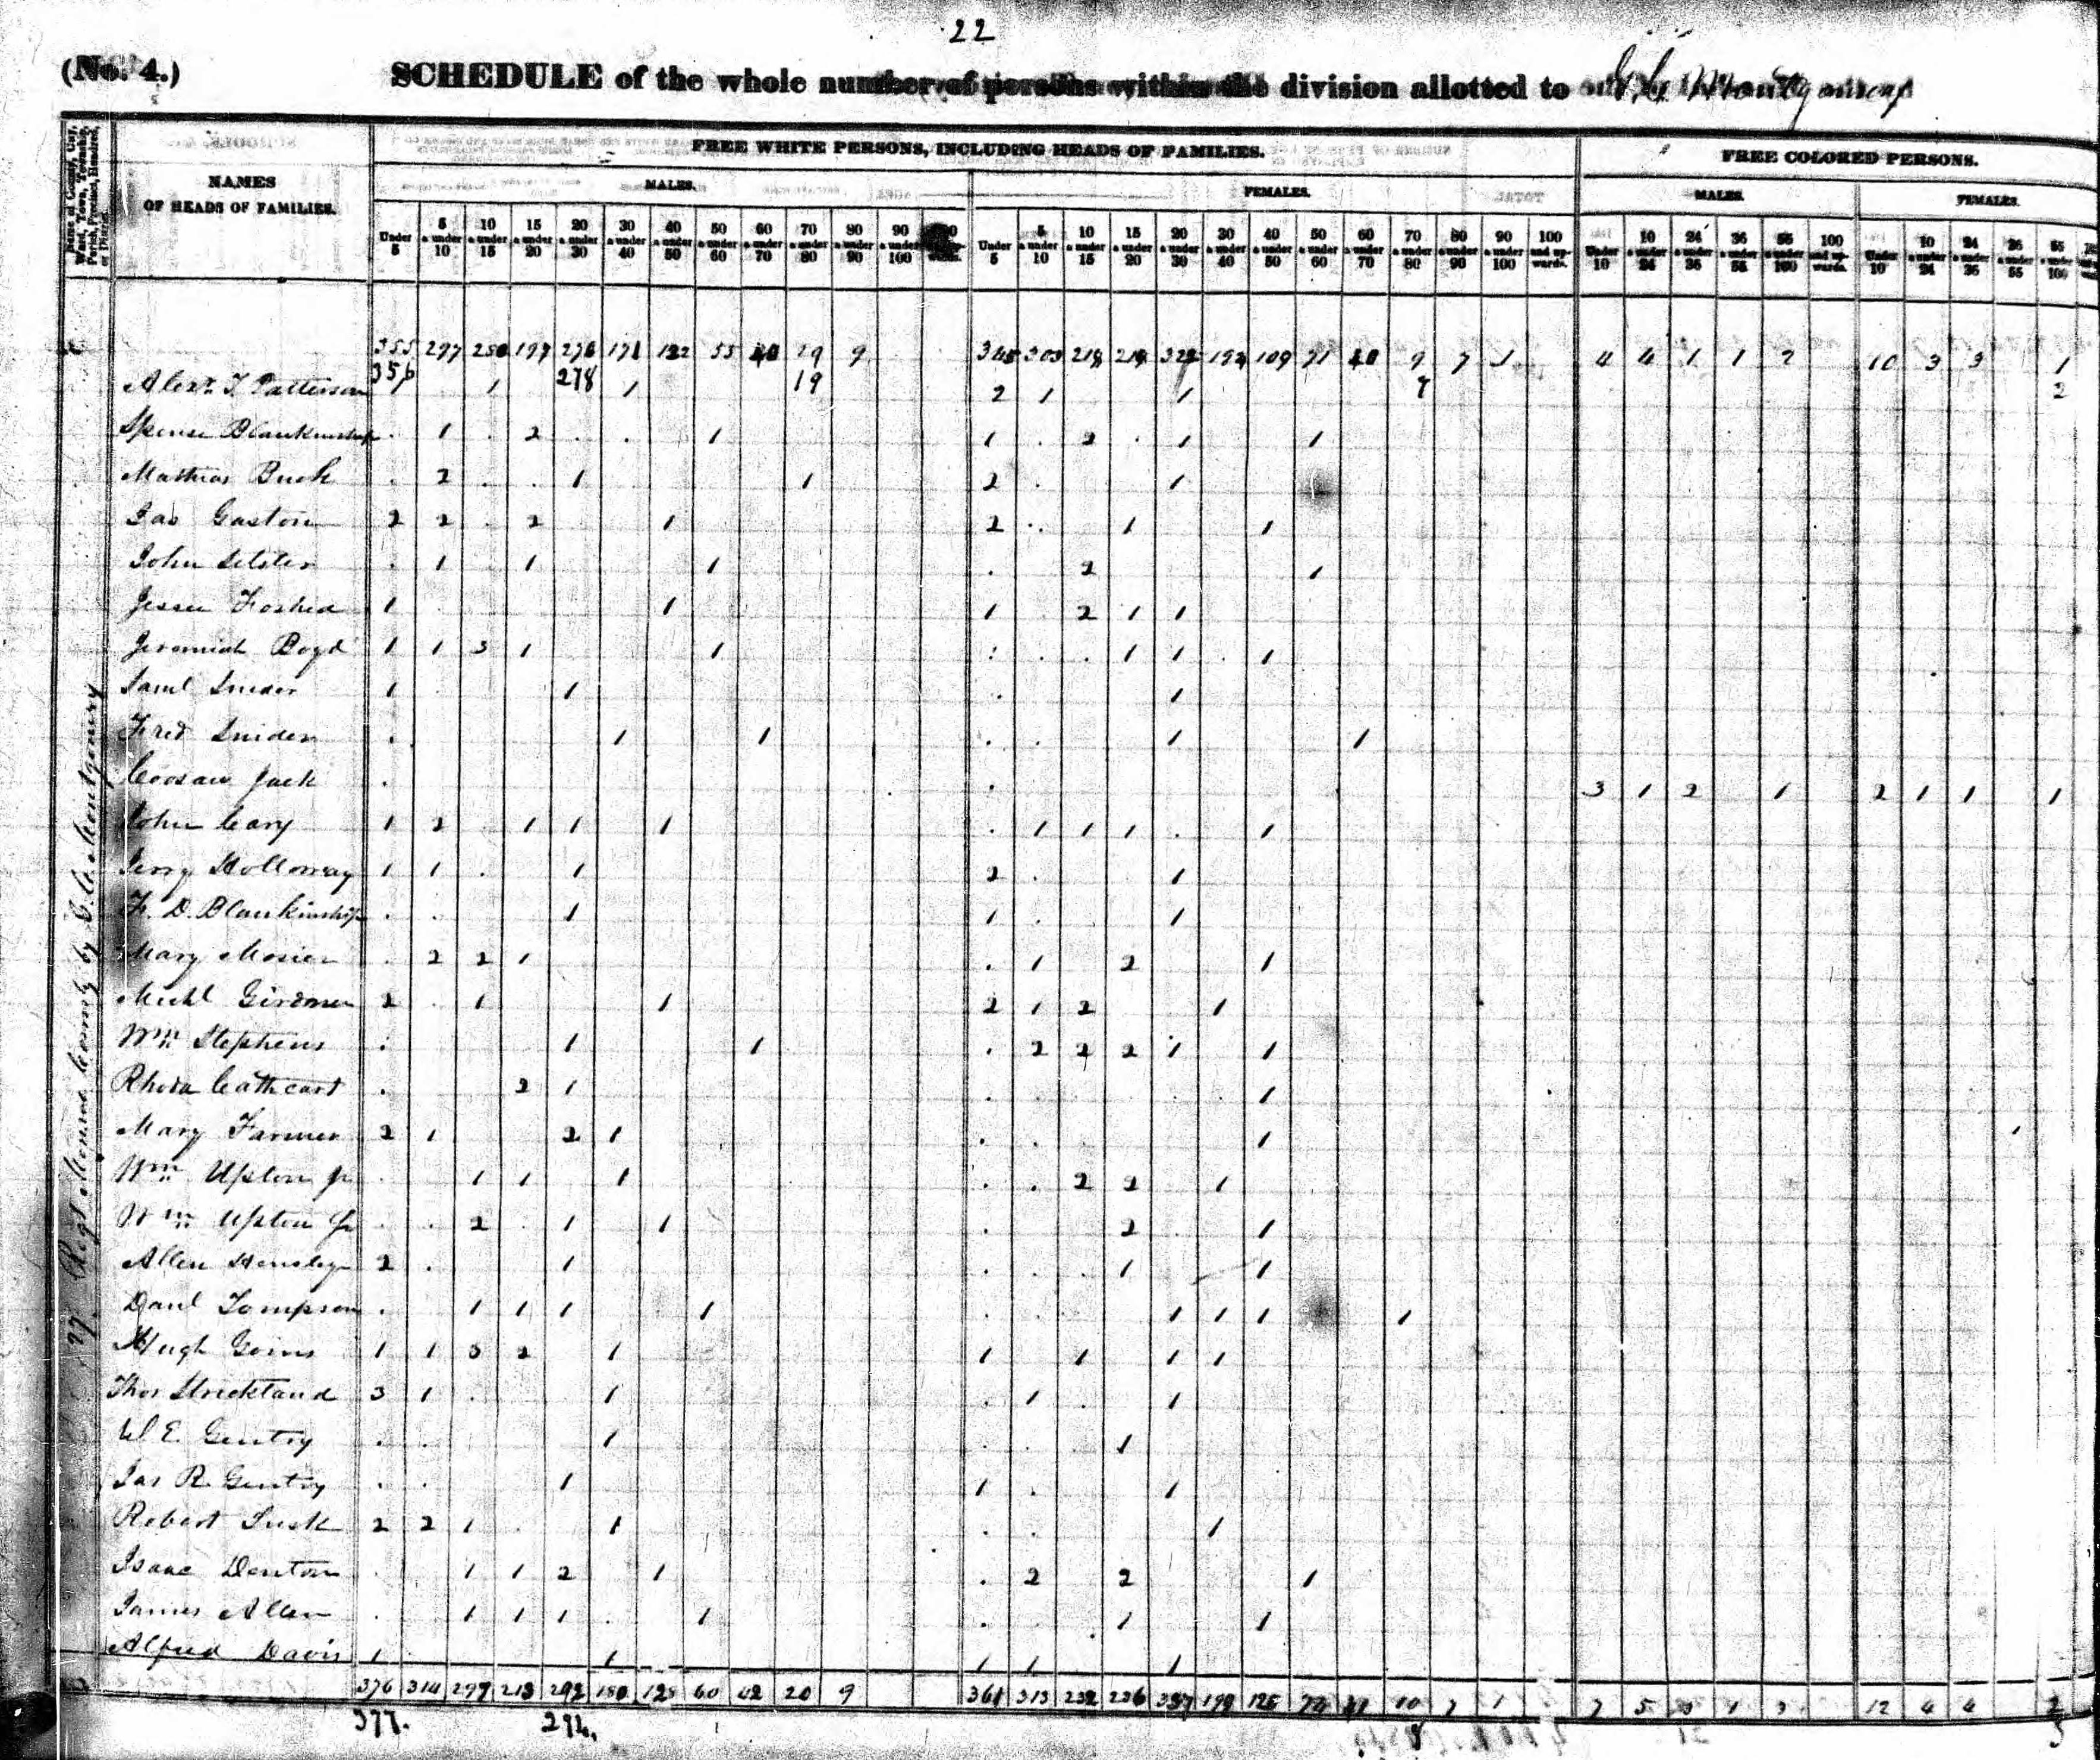 22
(No. 4.) SCHEDULE of the whole number of persons within the division allotted to
Name of County, City, Ward, Town, Township, Parish, Precinct, Hundred, or District.
NAMES OF HEADS OF FAMILIES.
FREE WHITE PERSONS, INCLUDING HEADS OF FAMILIES.
FREE COLORED PERSONS.
MALES. FEMALES. MALES. FEMALES.
Under 5 | 5 & under 10 | 10 & under 15 | 15 & under 20 | 20 & under 30 | 30 & under 40 | 40 & under 50 | 50 & under 60 | 60 & under 70 | 70 & under 80 | 80 & under 90 | 90 & under 100 | Under 5 | 5 & under 10 | 10 & under 15 | 15 & under 20 | 20 & under 30 | 30 & under 40 | 40 & under 50 | 50 & under 60 | 60 & under 70 | 70 & under 80 | 80 & under 90 | 90 & under 100 | 100 and upwards. | Under 10 | 10 & under 24 | 24 & under 36 | 36 & under 55 | 55 & under 100 | 100 and upwards. | Under 10 | 10 & under 24 | 24 & under 36 | 36 & under 55 | 55 & under 100
355 297 250 197 276 171 122 55 40 19 9 303 218 109 71 9 7 1 4 4 1 1 2 10 3 3 1
356 278 19 2
Alexr. T. Patterson 1 1 1 2 1 1
Spencer Blankinship 1 2 1 1 2 1 1
Mathias Buck 2 1 1 2 1
Jas Gaston 2 2 2 1 2 1 1
John 1 1 1 2 1
Jesse Foshea 1 1 1 2 1 1
Jeremiah Boyd 1 1 3 1 1 1 1 1
Saml Snider 1 1 1
Fred Snider 1 1 1 1
Coosaw Jack 3 1 2 1 2 1 1 1
John Cary 1 2 1 1 1 1 1 1 1
Jerry Holloway 1 1 1 2 1
F. D. Blankinship 1 1 1
Mary Mosier 2 2 1 1 2 1
Michl Girdner 2 1 1 2 1 2 1
Wm. Stephens 1 1 2 2 2 1 1
Rhoda Cathcart 2 1 1
Mary Farmer 2 1 2 1 1
Wm. Upton 1 1 1 2 2 1
Wm. Upton Jr 2 1 1 2 1
Allen Hensley 2 1 1 1
Danl Tompson 1 1 1 1 1 1 1 1
Hugh Goins 1 1 3 2 1 1 1 1 1
Thos Strickland 3 1 1 1 1
W E. Gentry 1 1
Jas R. Gentry 1 1 1
Robert Lusk 2 2 1 1 1
Isaac Denton 1 1 2 1 2 2 1
James Allen 1 1 1 1 1 1
Alfred Davis 1 1 1 1 1
376 314 213 292 180 60 42 20 9 361 313 232 226 10 7 1 7 5 3 1 3 12 4 4 2
377. 294. 8
27 Regt Monroe County by C. C. Montgomery